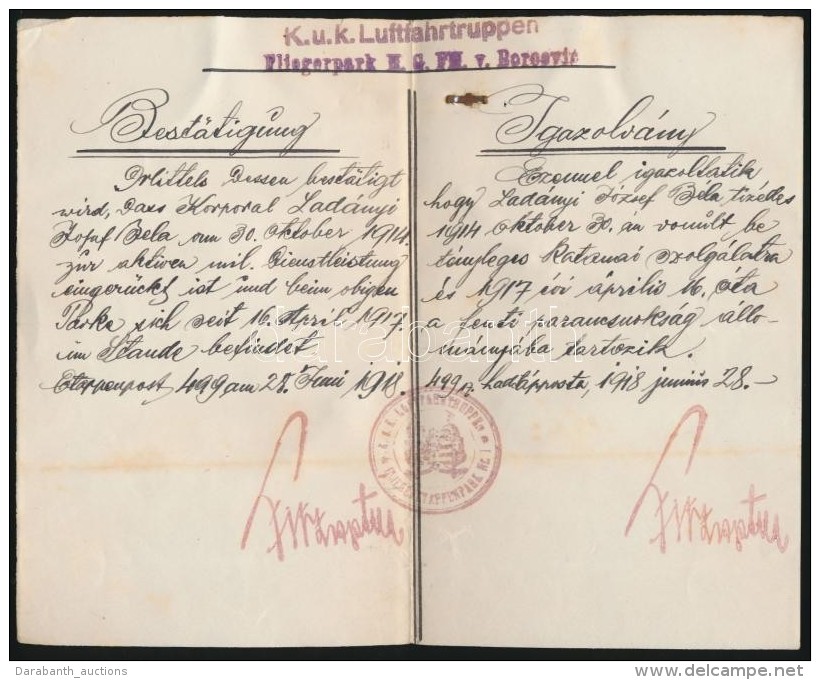 K.u.k. Luftfahrtruppen
Fliegerpark H. G. FM. v. Boroević
Bestätigung
Mittels Dessen bestätigt
wird, Dass Korporal Ladányi
Josef Bela am 30. Oktober 1914.
zur aktiven mil. Dienstleistung
eingerückt ist und beim obigen
Parke sich seit 16. April 1917.
im Stande befindet.
Etappenpost 499 am 28. Juni 1918.
Igazolvány
Ezennel igazoltatik
hogy Ladányi József Béla, tizedes
1914 Oktober 30.án vonúlt be
tényleges katonai szolgálatra
és 1917 évi április 16. óta
a fenti parancsnokság állo-
mányába tartozik.
499. haditáp posta, 1918 junius 28.-
K.u.K. LUFTFAHRTRUPPEN
FLIEGERETAPPENPARK Nr. 1
darabanth
Darabanth_auctions
www.delcampe.net